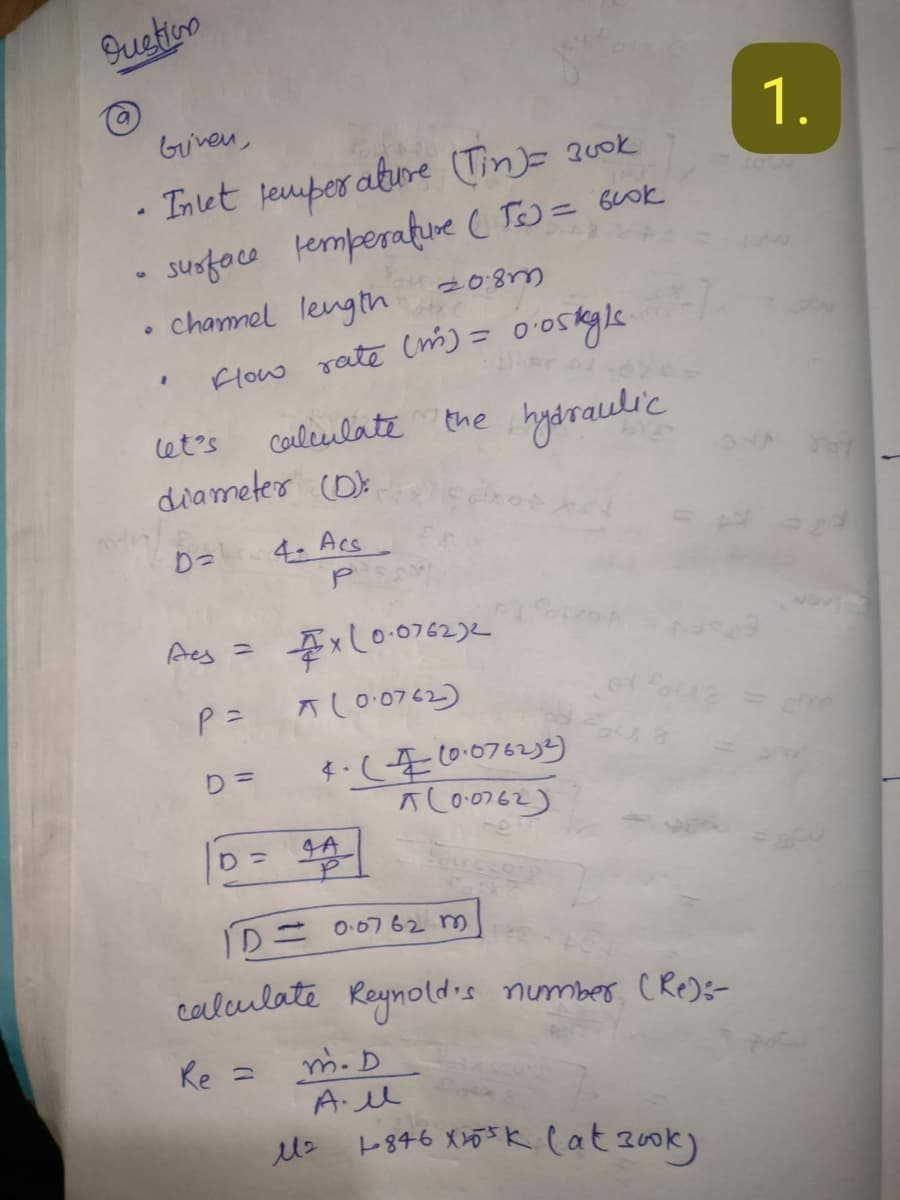 Question
1.
(a)
Given,
• Inlet temperature (Tin) = 300K
• surface temperature (Ts) = 600K
• channel length = 0.8m
• Flow rate (ṁ) = 0.05kg/s
let's calculate the hydraulic
diameter (D):
D = 4. Acs / P
Acs = π/4 x (0.0762)2
P = π (0.0762)
D = 4. (π/4 (0.0762)²) / π (0.0762)
D = 4A / P
D = 0.0762 m
calculate Reynold's number (Re):-
Re = ṁ. D / A. μ
μ = 1.846 x10-5 K (at 300K)